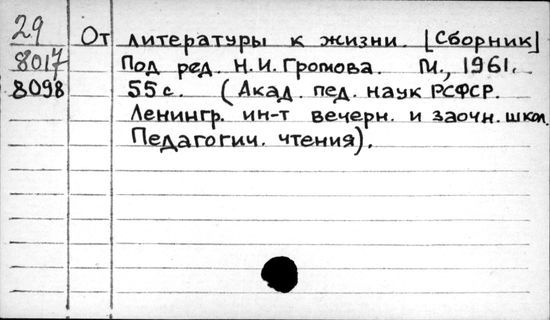 29
8017
8098
От литературы к жизни. [Сборник]
Под ред. Н.И. Громова. М., 1961.
55 с. (Акад. пед. наук РСФСР.
Ленингр. ин-т вечерн. и заочн. школ.
Педагогич. чтения).